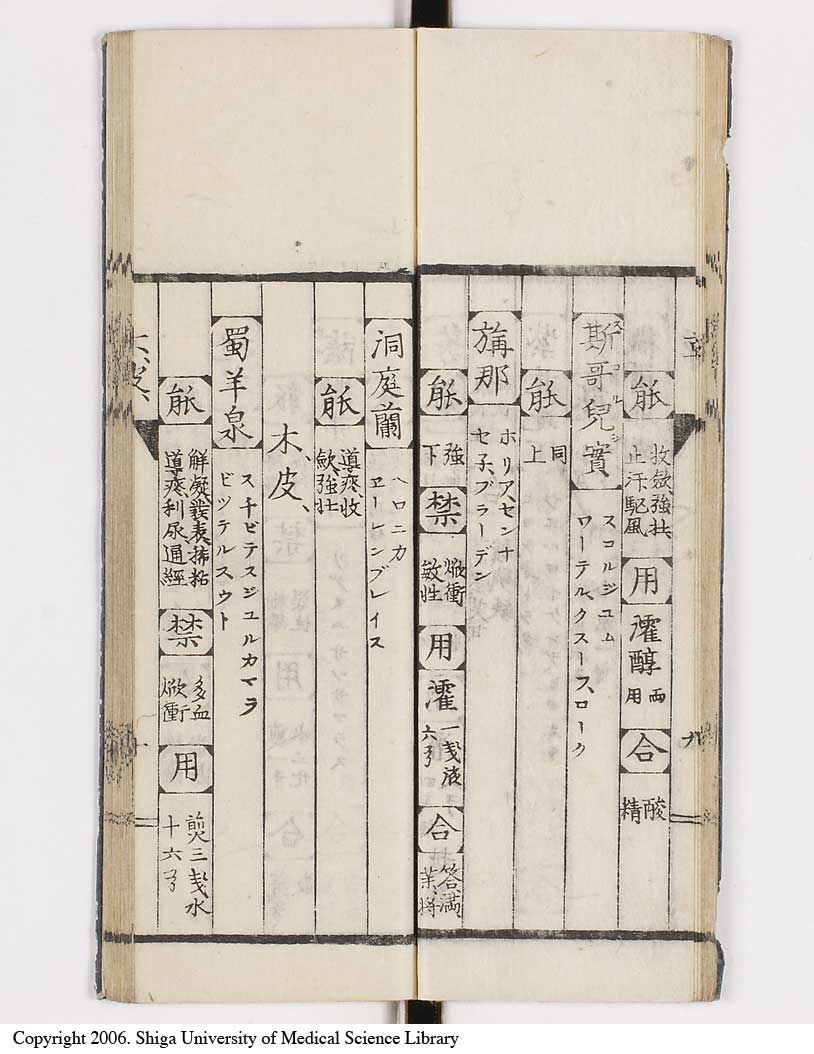 能 收斂強壯 止汗駆風 用 濯醇 両用 合 酸精
斯哥兒實 スコルジ スコルジユム
ワーテルクスースローク
能 同上
旃那 ホリアセンナ
セ子ブラーデン
能 強下 禁 焮衝 敏性 用 濯 一戔液 六弓 合 答満 将
洞庭藺 ヘロニカ
ヱーレンブレイス
能 導痰收 斂強壮
木皮、
蜀羊泉 スチビテスジユルカマラ
ビツテルスウト
能 解凝發表稀粘 導痰利尿通經 禁 多血 焮衝 用 煎三戔水 十六弓
木皮
Copyright 2006. Shiga University of Medical Science Library